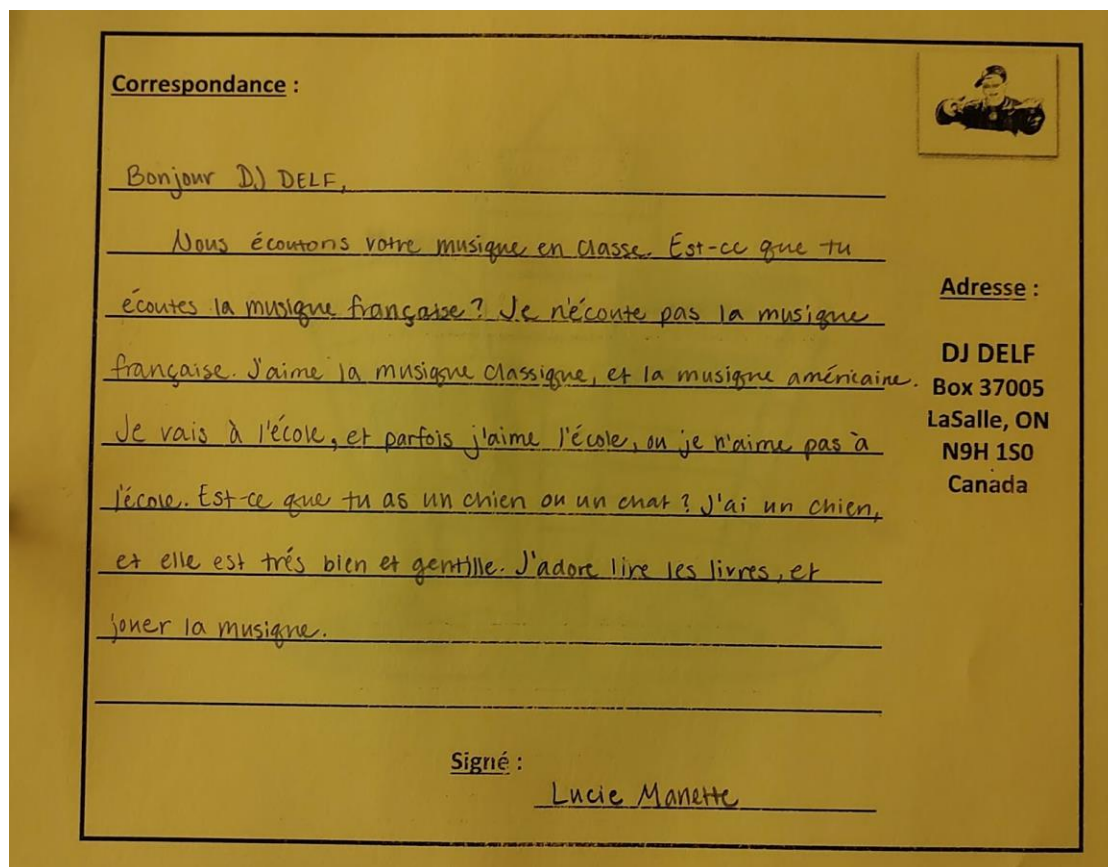 Correspondance :
Bonjour DJ DELF,
Nous écoutons votre musique en classe. Est-ce que tu
écoutes la musique française? Je n'écoute pas la musique
française. J'aime la musique classique, et la musique américaine.
Je vais à l'école, et parfois j'aime l'école, ou je n'aime pas à
l'école. Est-ce que tu as un chien ou un chat? J'ai un chien,
et elle est trés bien et gentille. J'adore lire les livres, et
jouer la musique.
Signé :
Lucie Manette
Adresse :
DJ DELF
Box 37005
LaSalle, ON
N9H 1S0
Canada